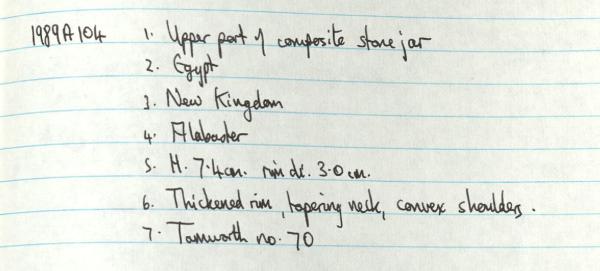 1989A104 1. Upper part of composite stone jar
2. Egypt
3. New Kingdom
4. Alabaster
5. H. 7.4cm. rim di. 3.0 cm.
6. Thickened rim, tapering neck, convex shoulders.
7. Tamworth no. 70